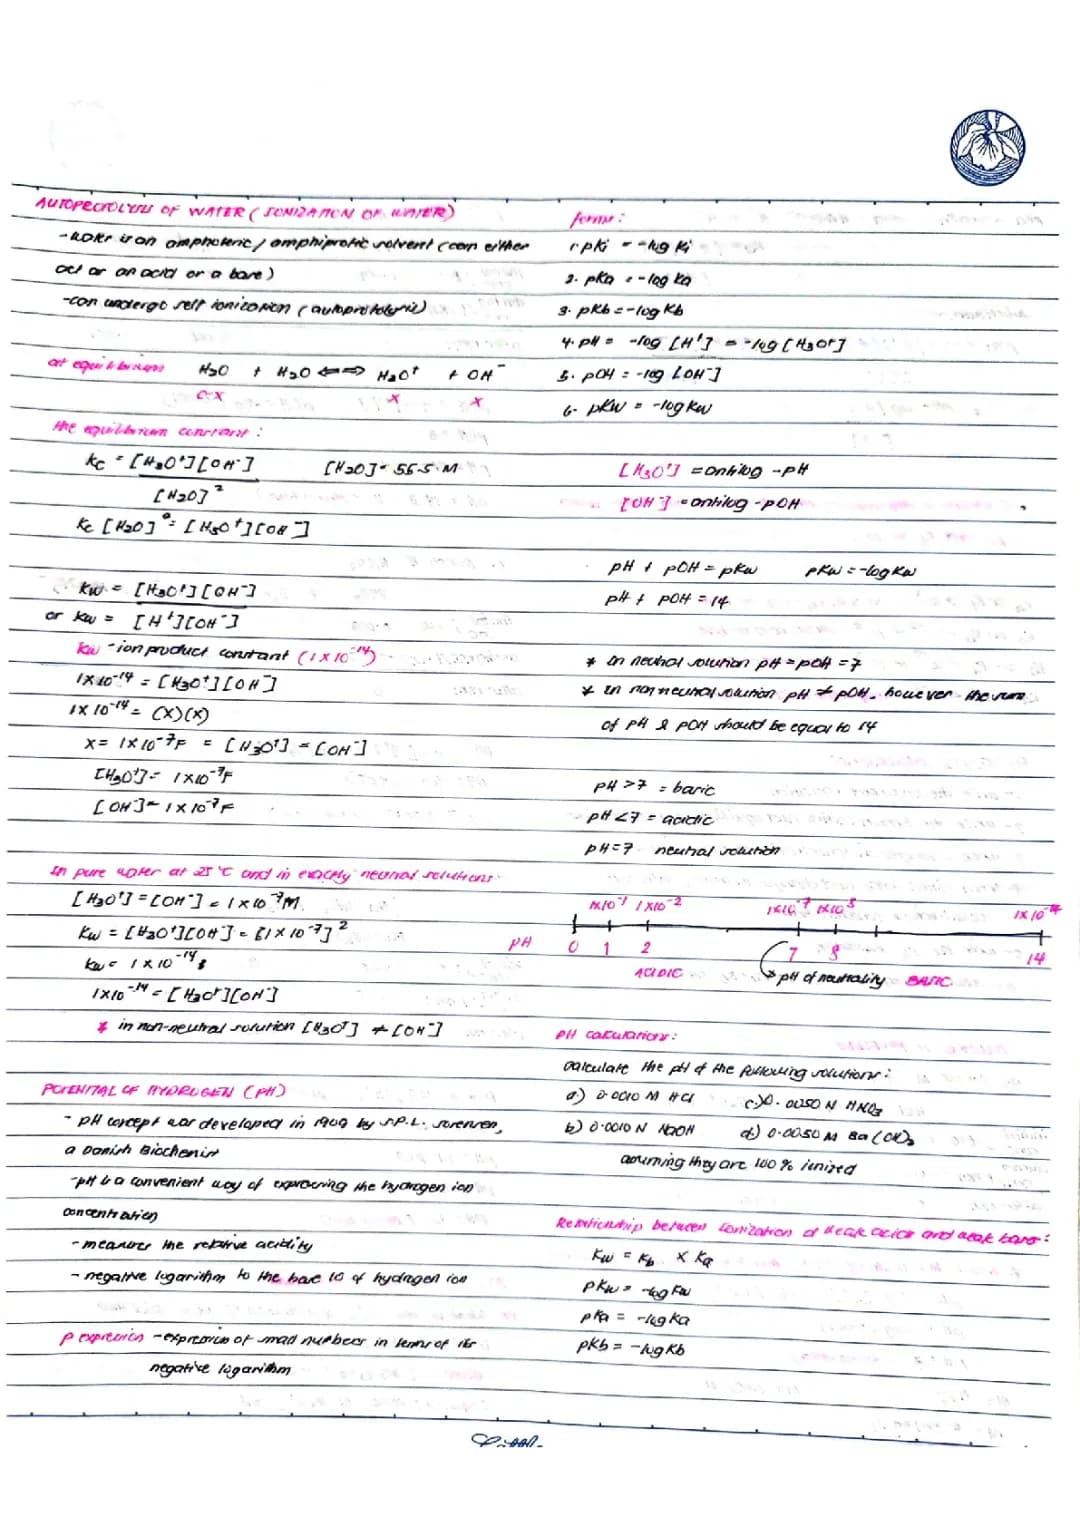 AUTOPROTOLYSIS OF WATER (IONIZATION OF WATER)
- water is an amphoteric / amphiprotic solvent (can either
act as an acid or a base)
- can undergo self ionization (autoprotolysis)
at equilibrium H₂O + H₂O ⇌ H₃O⁺ + OH⁻
C-X X X
the equilibrium constant :
Kc = [H₃O⁺][OH⁻] [H₂O] = 55.5 M
[H₂O]²
Kc [H₂O]² = [H₃O⁺][OH⁻]
Kw = [H₃O⁺][OH⁻]
or Kw = [H⁺][OH⁻]
Kw - ion product constant (1 x 10⁻¹⁴)
1 x 10⁻¹⁴ = [H₃O⁺][OH]
1 x 10⁻¹⁴ = (x)(x)
x = 1 x 10⁻⁷F = [H₃O⁺] = [OH⁻]
[H₃O⁺] = 1 x 10⁻⁷F
[OH⁻] = 1 x 10⁻⁷F
In pure water at 25 °C and in exactly neutral solutions
[H₃O⁺] = [OH⁻] = 1 x 10⁻⁷M
Kw = [H₃O⁺][OH⁻] = [1 x 10⁻⁷]²
Kw = 1 x 10⁻¹⁴
1x10⁻¹⁴ = [H₃O⁺][OH⁻]
* in non-neutral solution [H₃O⁺] ≠ [OH⁻]
POTENTIAL OF HYDROGEN (PH)
- pH concept was developed in 1909 by S.P.L. Sorensen,
a Danish Biochemist
- pH is a convenient way of expressing the hydrogen ion
concentration
- measures the relative acidity
- negative logarithm to the base 10 of hydrogen ion
p expression - expression of small numbers in terms of its
negative logarithm
forms :
1. pKi = -log Ki
2. pKa = -log Ka
3. pKb = -log Kb
4. pH = -log [H⁺] = -log [H₃O⁺]
5. pOH = -log [OH⁻]
6. pKw = -log Kw
[H₃O⁺] = antilog -pH
[OH⁻] = antilog -pOH
pH + pOH = pKw pKw = -log Kw
pH + pOH = 14
* in neutral solution pH = pOH = 7
* in non neutral solution pH ≠ pOH, however the sum
of pH & pOH should be equal to 14
pH >7 = basic
pH <7 = acidic
pH = 7 neutral solution
1x10⁻¹ 1x10⁻² 1x10⁻⁷ 1x10⁻⁸ 1x10⁻¹⁴
pH 0 1 2 7 8 14
ACIDIC pH of neutrality BASIC
pH calculations :
calculate the pH of the following solutions :
a) 0.0010 M HCl c) 0.0050 N HNO₃
b) 0.0010 N NaOH d) 0.0050 M Ba(OH)₂
assuming they are 100 % ionized
Relationship between Ionization of weak acids and weak bases :
Kw = Kb x Ka
pKw = -log Kw
pKa = -log Ka
pKb = -log Kb